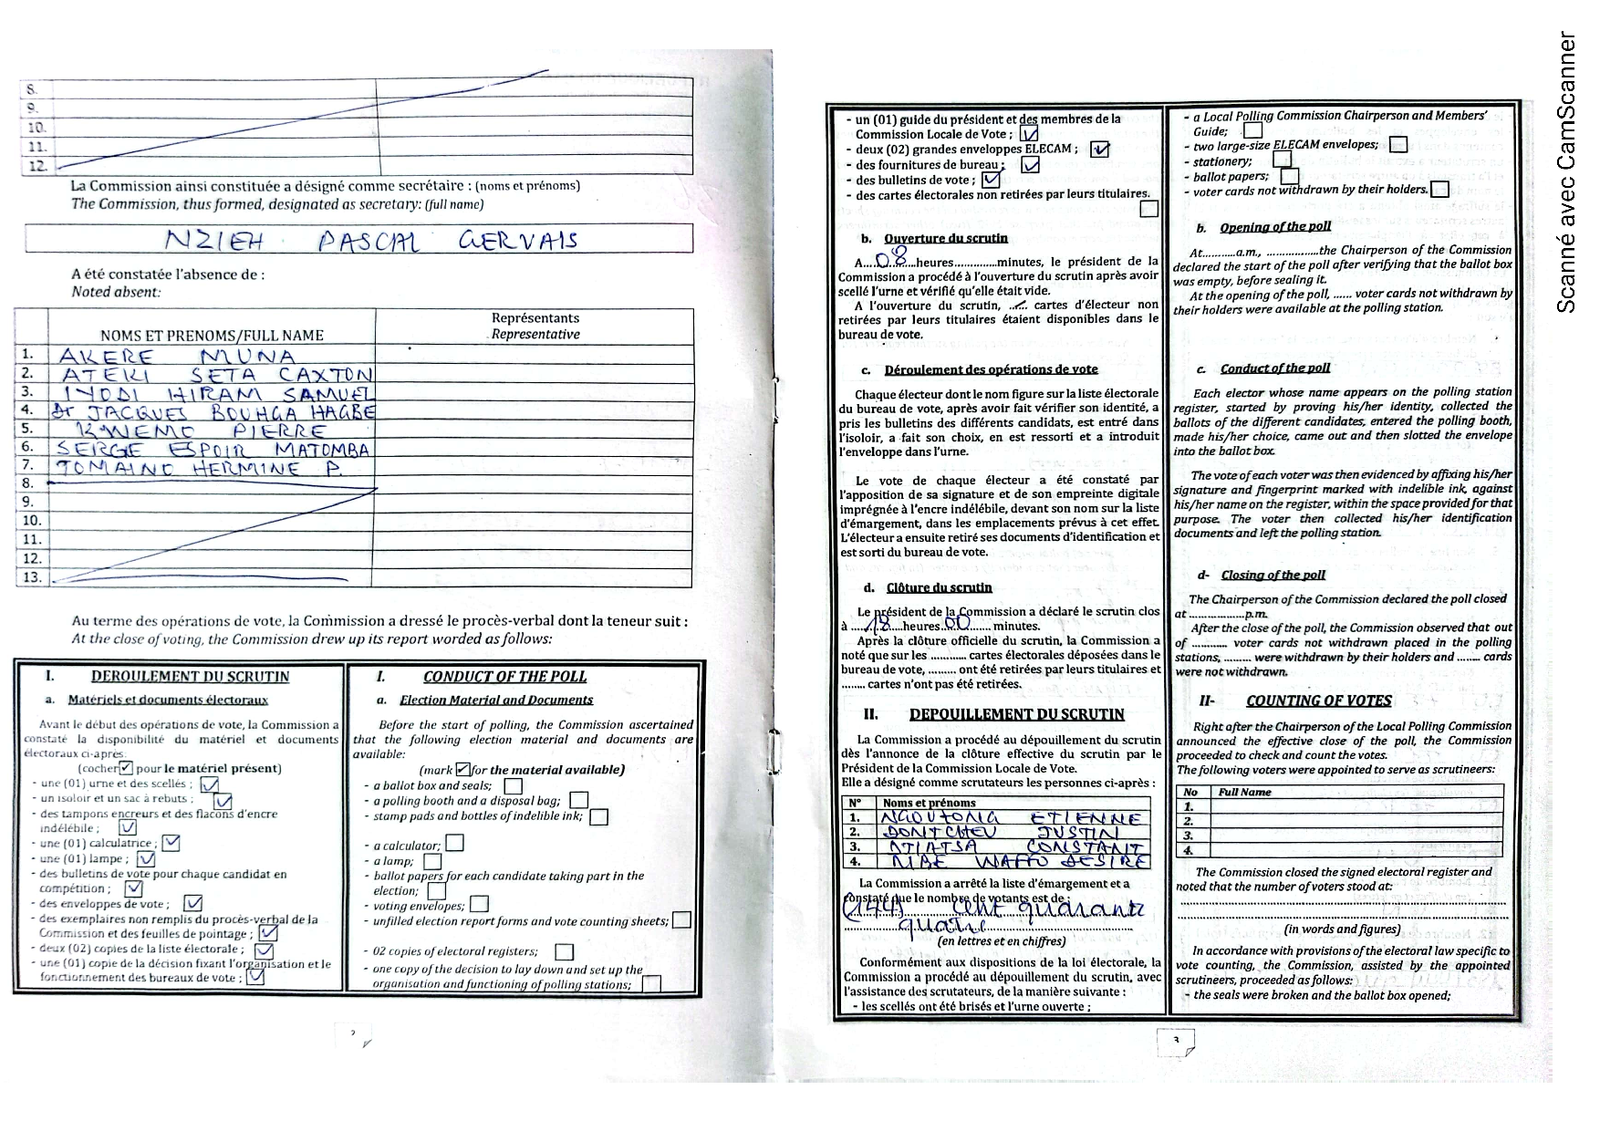 8.
9.
10.
11.
12.
La Commission ainsi constituée a désigné comme secrétaire : (noms et prénoms)
The Commission, thus formed, designated as secretary: (full name)
NZIEH PASCAL GERVAIS
A été constatée l'absence de :
Noted absent:
NOMS ET PRENOMS/FULL NAME
Représentants
Representative
1. AKERE MUNA
2. ATEKI SETA CAXTON
3. IYODI HIRAM SAMUEL
4. Dr JACQUES BOUHGA HAGBE
5. KWEMO PIERRE
6. SERGE ESPOIR MATOMBA
7. TOMAINO HERMINE P.
8.
9.
10.
11.
12.
13.
Au terme des opérations de vote, la Commission a dressé le procès-verbal dont la teneur suit :
At the close of voting, the Commission drew up its report worded as follows:
I. DEROULEMENT DU SCRUTIN
a. Matériels et documents électoraux
Avant le début des opérations de vote, la Commission a
constaté la disponibilité du matériel et documents
électoraux ci-après.
(cocher ☑ pour le matériel présent)
- une (01) urne et des scellés ; ☑
- un isoloir et un sac à rebuts ; ☑
- des tampons encreurs et des flacons d'encre
indélébile ; ☑
- une (01) calculatrice ; ☑
- une (01) lampe ; ☑
- des bulletins de vote pour chaque candidat en
compétition ; ☑
- des enveloppes de vote ; ☑
- des exemplaires non remplis du procès-verbal de la
Commission et des feuilles de pointage ; ☑
- deux (02) copies de la liste électorale ; ☑
- une (01) copie de la décision fixant l'organisation et le
fonctionnement des bureaux de vote ; ☑
I. CONDUCT OF THE POLL
a. Election Material and Documents
Before the start of polling, the Commission ascertained
that the following election material and documents are
available:
(mark ☑ for the material available)
- a ballot box and seals; ☐
- a polling booth and a disposal bag; ☐
- stamp pads and bottles of indelible ink; ☐
- a calculator; ☐
- a lamp; ☐
- ballot papers for each candidate taking part in the
election; ☐
- voting envelopes; ☐
- unfilled election report forms and vote counting sheets; ☐
- 02 copies of electoral registers; ☐
- one copy of the decision to lay down and set up the
organisation and functioning of polling stations; ☐
2
- un (01) guide du président et des membres de la
Commission Locale de Vote ; ☑
- deux (02) grandes enveloppes ELECAM ; ☑
- des fournitures de bureau ; ☑
- des bulletins de vote ; ☑
- des cartes électorales non retirées par leurs titulaires.
☐
b. Ouverture du scrutin
A....08....heures.............minutes, le président de la
Commission a procédé à l'ouverture du scrutin après avoir
scellé l'urne et vérifié qu'elle était vide.
A l'ouverture du scrutin, ...... cartes d'électeur non
retirées par leurs titulaires étaient disponibles dans le
bureau de vote.
c. Déroulement des opérations de vote
Chaque électeur dont le nom figure sur la liste électorale
du bureau de vote, après avoir fait vérifier son identité, a
pris les bulletins des différents candidats, est entré dans
l'isoloir, a fait son choix, en est ressorti et a introduit
l'enveloppe dans l'urne.
Le vote de chaque électeur a été constaté par
l'apposition de sa signature et de son empreinte digitale
imprégnée à l'encre indélébile, devant son nom sur la liste
d'émargement, dans les emplacements prévus à cet effet.
L'électeur a ensuite retiré ses documents d'identification et
est sorti du bureau de vote.
d. Clôture du scrutin
Le président de la Commission a déclaré le scrutin clos
à ....18....heures..00...... minutes.
Après la clôture officielle du scrutin, la Commission a
noté que sur les ............ cartes électorales déposées dans le
bureau de vote, ......... ont été retirées par leurs titulaires et
........ cartes n'ont pas été retirées.
II. DEPOUILLEMENT DU SCRUTIN
La Commission a procédé au dépouillement du scrutin
dès l'annonce de la clôture effective du scrutin par le
Président de la Commission Locale de Vote.
Elle a désigné comme scrutateurs les personnes ci-après :
N° Noms et prénoms
1. NGOUTONG ETIENNE
2. DONTCHEU JUSTIN
3. ATIATSA CONSTANT
4. MBE WAFFO DESIRE
La Commission a arrêté la liste d'émargement et a
constaté que le nombre de votants est de :
(144) cent quarante
quatre
(en lettres et en chiffres)
Conformément aux dispositions de la loi électorale, la
Commission a procédé au dépouillement du scrutin, avec
l'assistance des scrutateurs, de la manière suivante :
- les scellés ont été brisés et l'urne ouverte ;
- a Local Polling Commission Chairperson and Members'
Guide; ☐
- two large-size ELECAM envelopes; ☐
- stationery; ☐
- ballot papers; ☐
- voter cards not withdrawn by their holders. ☐
b. Opening of the poll
At...........a.m., .................the Chairperson of the Commission
declared the start of the poll after verifying that the ballot box
was empty, before sealing it.
At the opening of the poll, ...... voter cards not withdrawn by
their holders were available at the polling station.
c. Conduct of the poll
Each elector whose name appears on the polling station
register, started by proving his/her identity, collected the
ballots of the different candidates, entered the polling booth,
made his/her choice, came out and then slotted the envelope
into the ballot box.
The vote of each voter was then evidenced by affixing his/her
signature and fingerprint marked with indelible ink, against
his/her name on the register, within the space provided for that
purpose. The voter then collected his/her identification
documents and left the polling station.
d- Closing of the poll
The Chairperson of the Commission declared the poll closed
at .................p.m.
After the close of the poll, the Commission observed that out
of ............ voter cards not withdrawn placed in the polling
stations, ......... were withdrawn by their holders and ........ cards
were not withdrawn.
II- COUNTING OF VOTES
Right after the Chairperson of the Local Polling Commission
announced the effective close of the poll, the Commission
proceeded to check and count the votes.
The following voters were appointed to serve as scrutineers:
No Full Name
1.
2.
3.
4.
The Commission closed the signed electoral register and
noted that the number of voters stood at:
(in words and figures)
In accordance with provisions of the electoral law specific to
vote counting, the Commission, assisted by the appointed
scrutineers, proceeded as follows:
- the seals were broken and the ballot box opened;
3
Scanné avec CamScanner